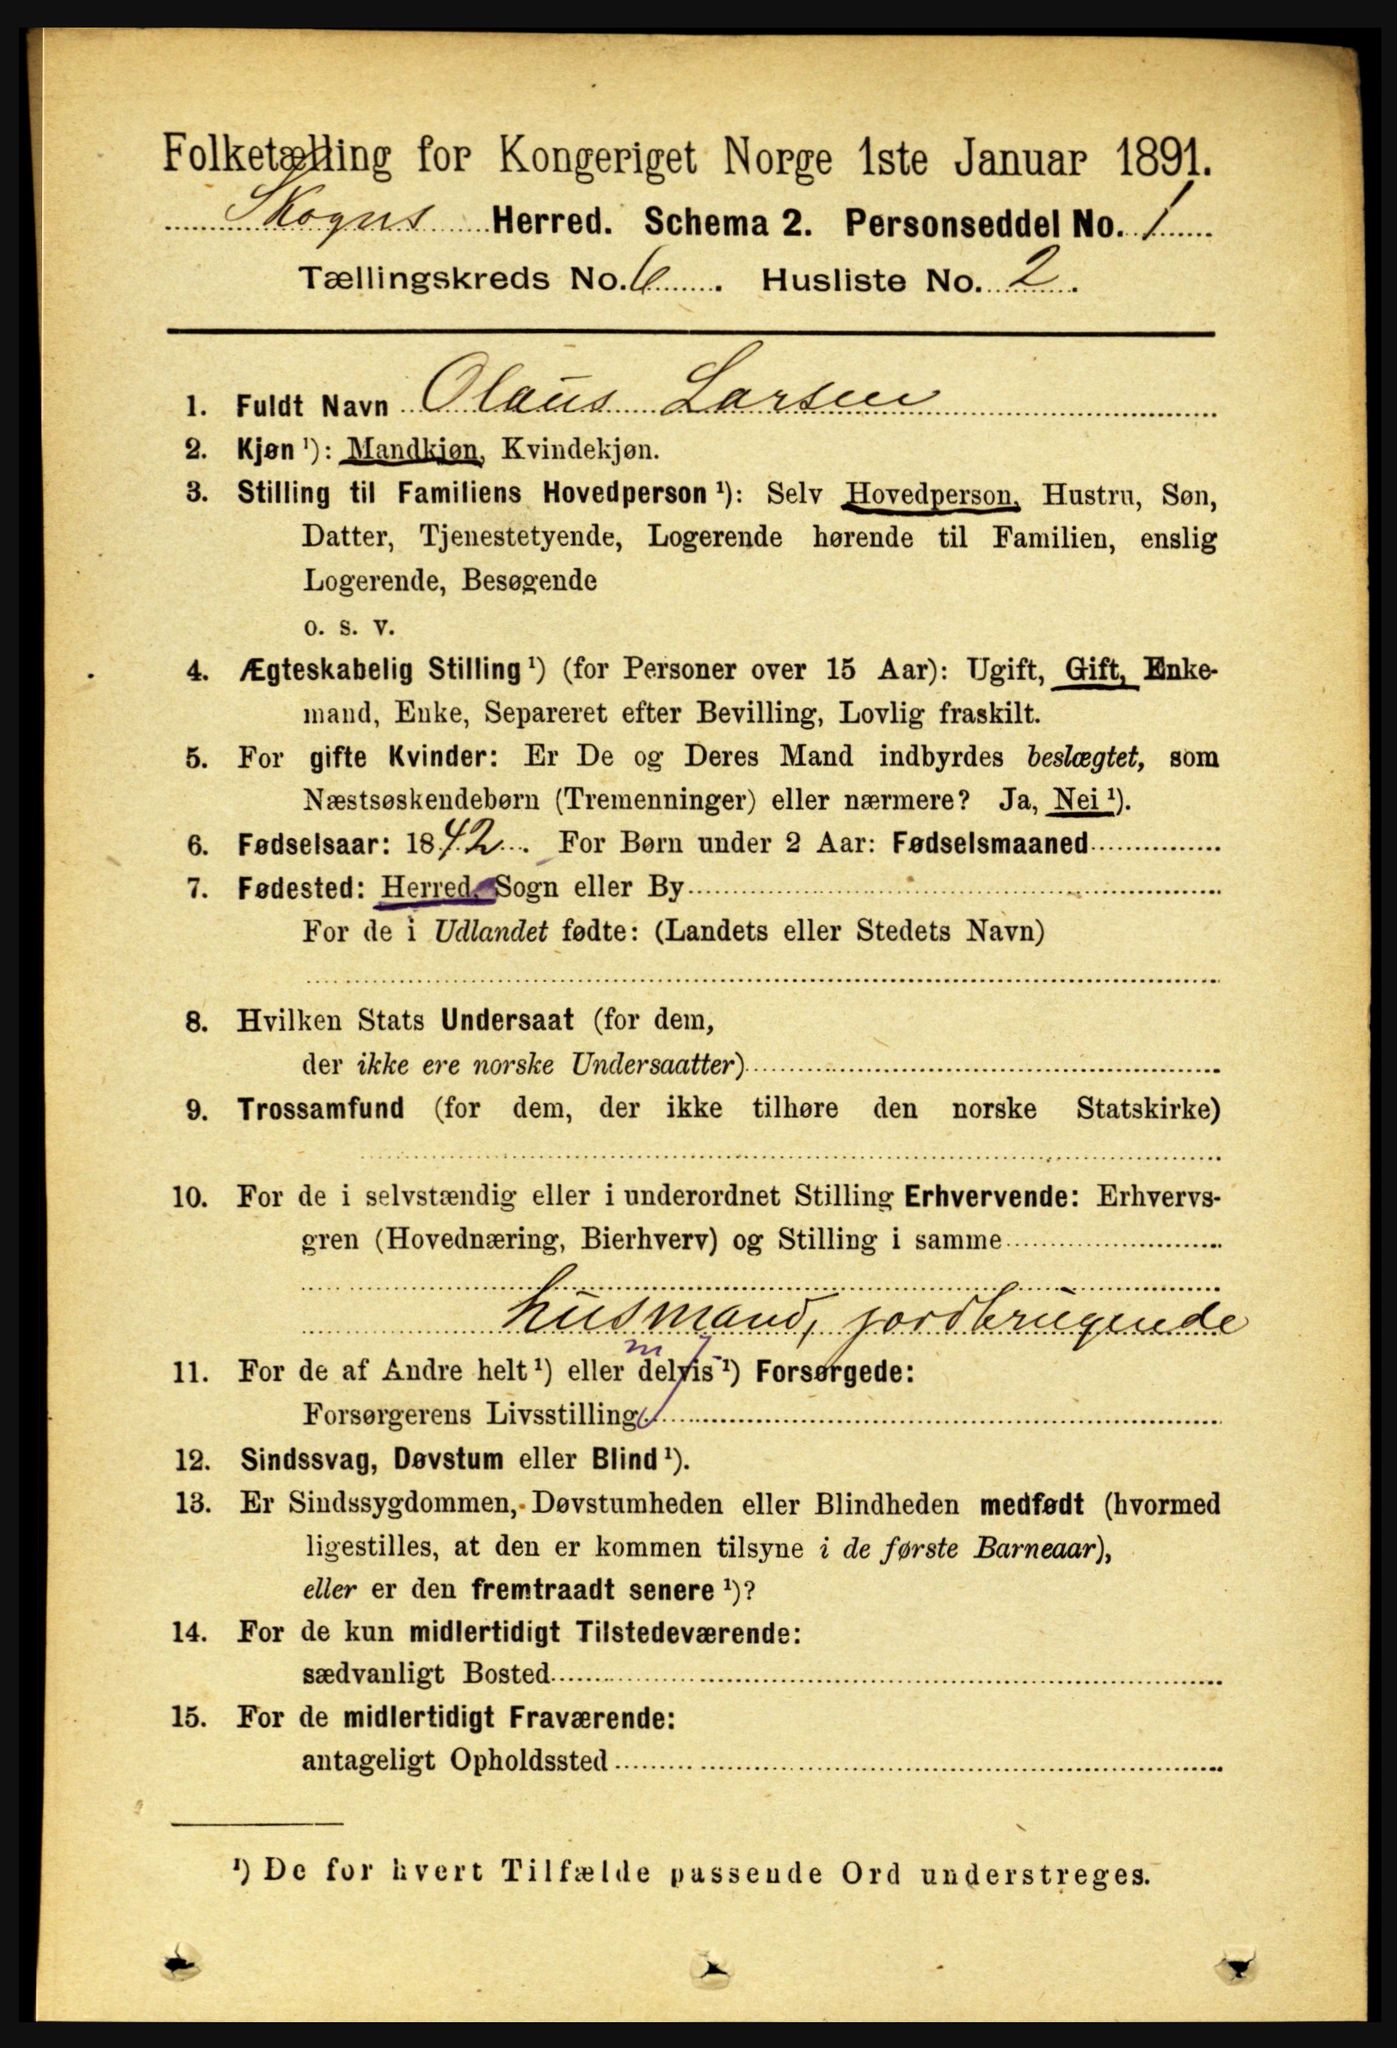 Folketælling for Kongeriget Norge 1ste Januar 1891.
Skogns Herred. Schema 2. Personseddel No. 1
Tællingskreds No. 6. Husliste No. 2.
1. Fuldt Navn Olaus Larsen
2. Kjøn ¹): Mandkjøn, Kvindekjøn.
3. Stilling til Familiens Hovedperson ¹): Selv Hovedperson, Hustru, Søn,
Datter, Tjenestetyende, Logerende hørende til Familien, enslig
Logerende, Besøgende
o. s. v.
4. Ægteskabelig Stilling ¹) (for Personer over 15 Aar): Ugift, Gift, Enke-
mand, Enke, Separeret efter Bevilling, Lovlig fraskilt.
5. For gifte Kvinder: Er De og Deres Mand indbyrdes beslægtet, som
Næstsøskendebørn (Tremenninger) eller nærmere? Ja, Nei ¹).
6. Fødselsaar: 1842. For Børn under 2 Aar: Fødselsmaaned
7. Fødested: Herred, Sogn eller By
For de i Udlandet fødte: (Landets eller Stedets Navn)
8. Hvilken Stats Undersaat (for dem,
der ikke ere norske Undersaatter)
9. Trossamfund (for dem, der ikke tilhøre den norske Statskirke)
10. For de i selvstændig eller i underordnet Stilling Erhvervende: Erhvervs-
gren (Hovednæring, Bierhverv) og Stilling i samme
husmand, jordbrugende
11. For de af Andre helt ¹) eller delvis ¹) Forsørgede:
Forsørgerens Livsstilling
12. Sindssvag, Døvstum eller Blind ¹).
13. Er Sindssygdommen, Døvstumheden eller Blindheden medfødt (hvormed
ligestilles, at den er kommen tilsyne i de første Barneaar),
eller er den fremtraadt senere ¹)?
14. For de kun midlertidigt Tilstedeværende:
sædvanligt Bosted
15. For de midlertidigt Fraværende:
antageligt Opholdssted
¹) De for hvert Tilfælde passende Ord understreges.